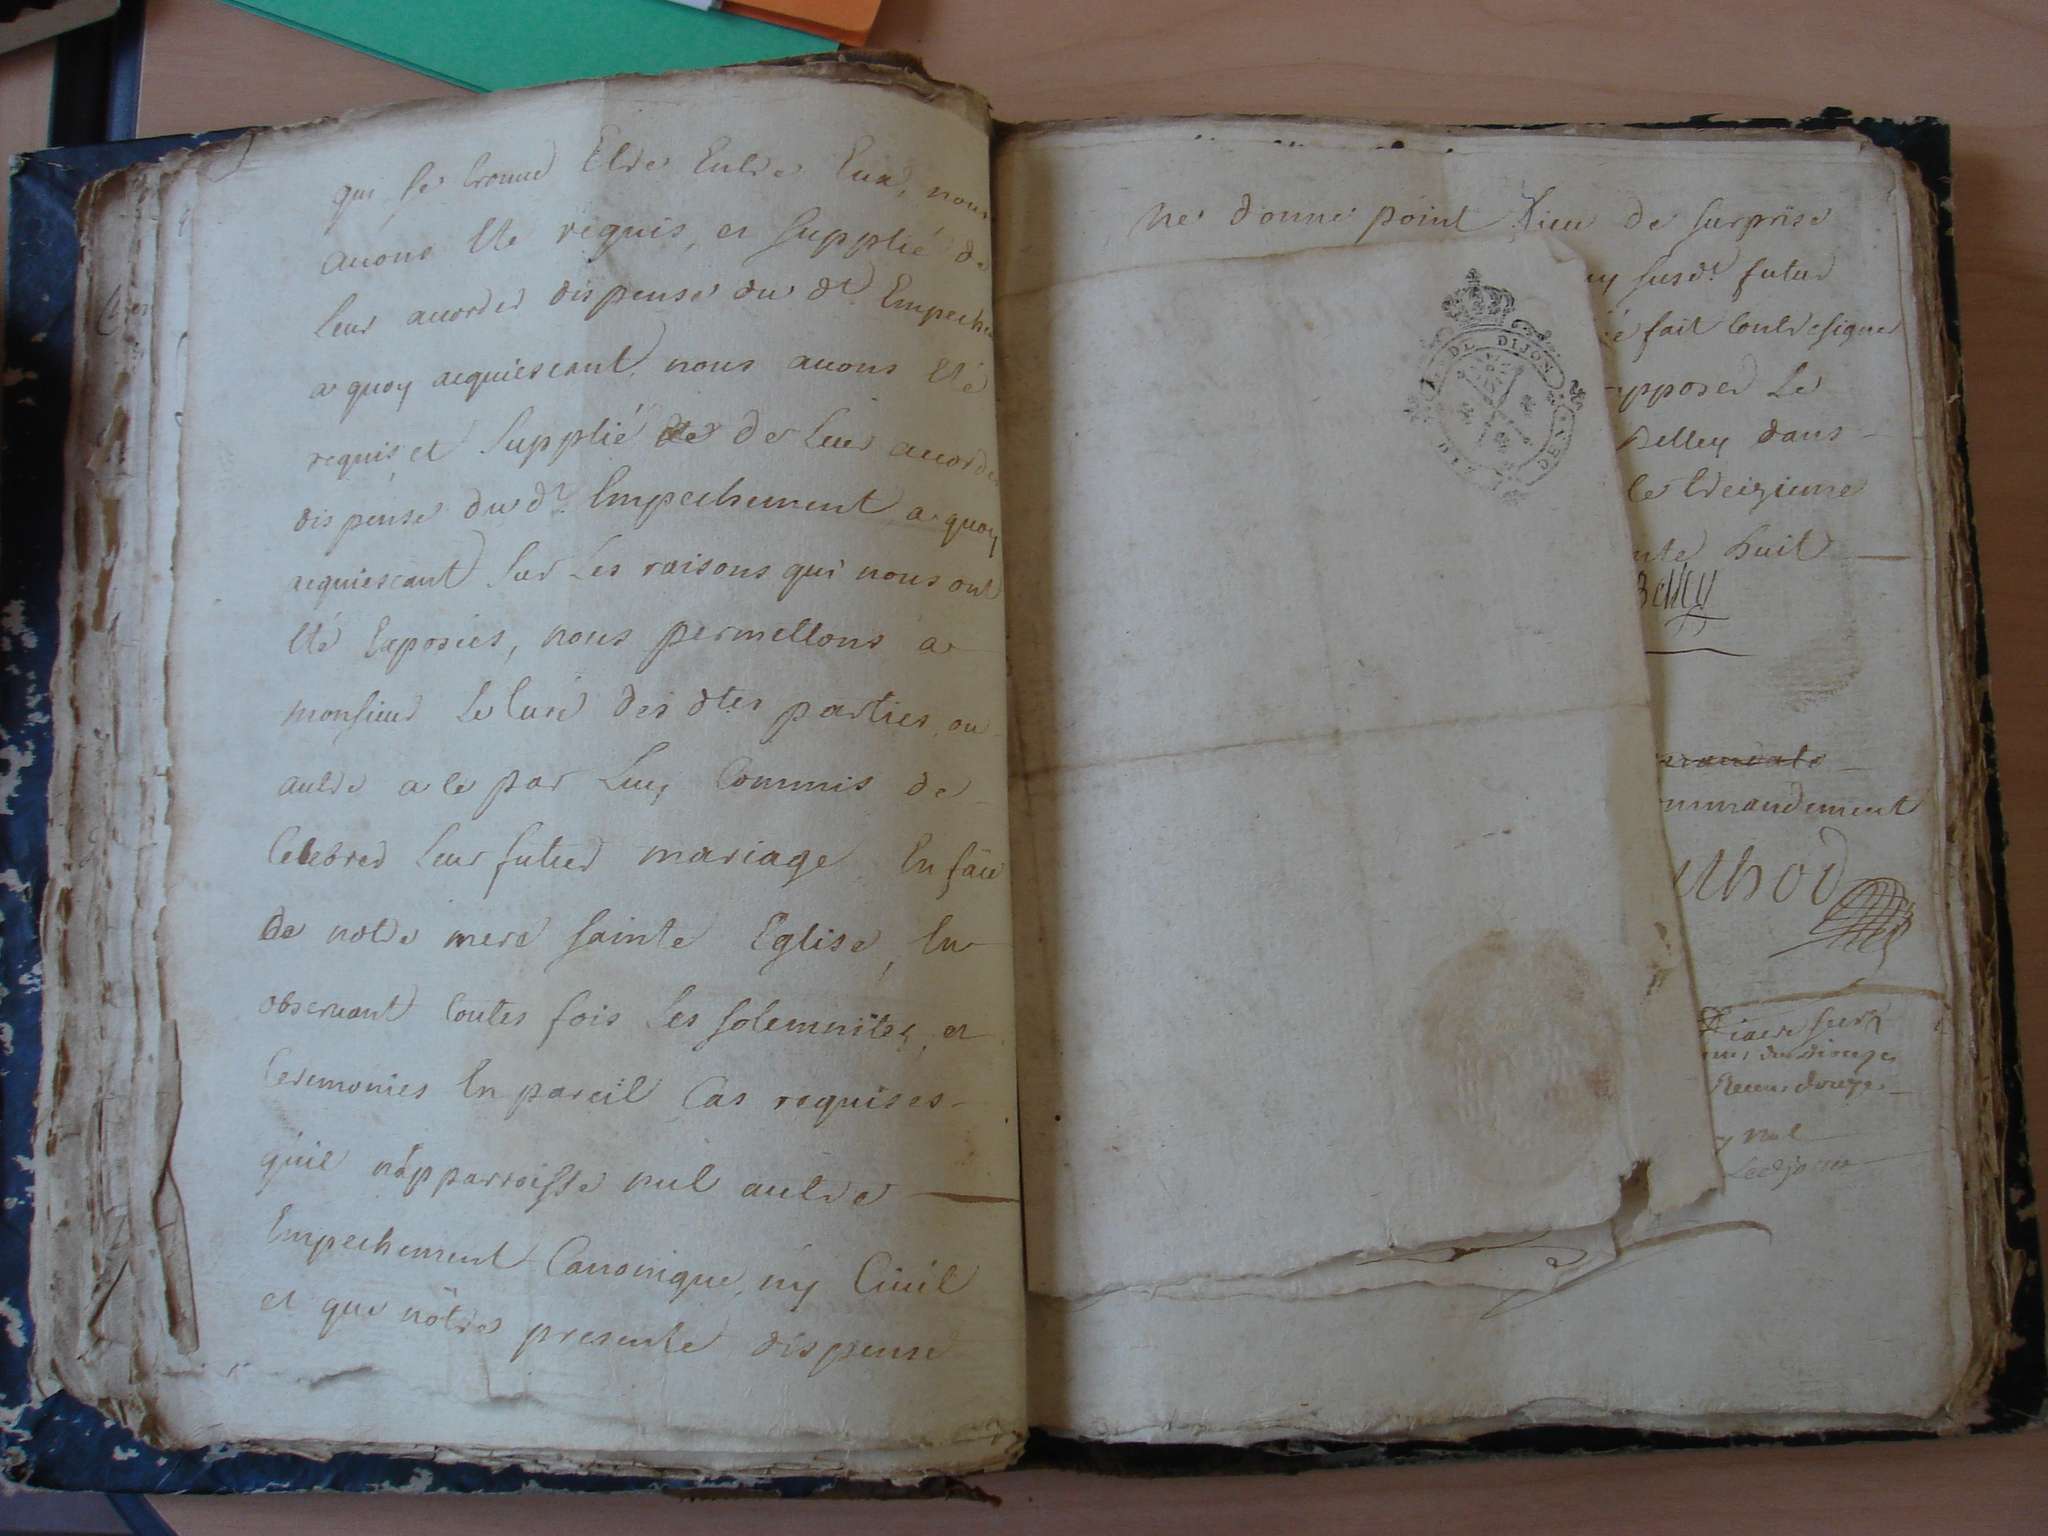 qui se trouve Etre Entre Eux, nous
auons Eté requis, et supplié de
leur accorder dispense du dt. Empeche
a quoy acquiescant, nous auons Eté
requis et supplié de de leur accorder
dispense du dt. Empechement a quoy
acquiescant sur Les raisons qui nous ont
Eté Exposées, nous permettons a
monsieur Le Curé des dtes parties, ou
autre a ce par Luy Commis de
Celebrer leur futur mariage En face
De notre mere sainte Eglise, En
observant toutes fois Les solemnités, et
Ceremonies En pareil Cas requises
qu'il n'apparroisse nul autre
Empechement Canonique, ny Ciuil
et que nôtre presente dispense
ne donne point Lieu de surprise
DE DIJON
susdt. futur
fait contresigner
apposer Le
Belley dans
le treizieme
huit
Belley
commandement
nul